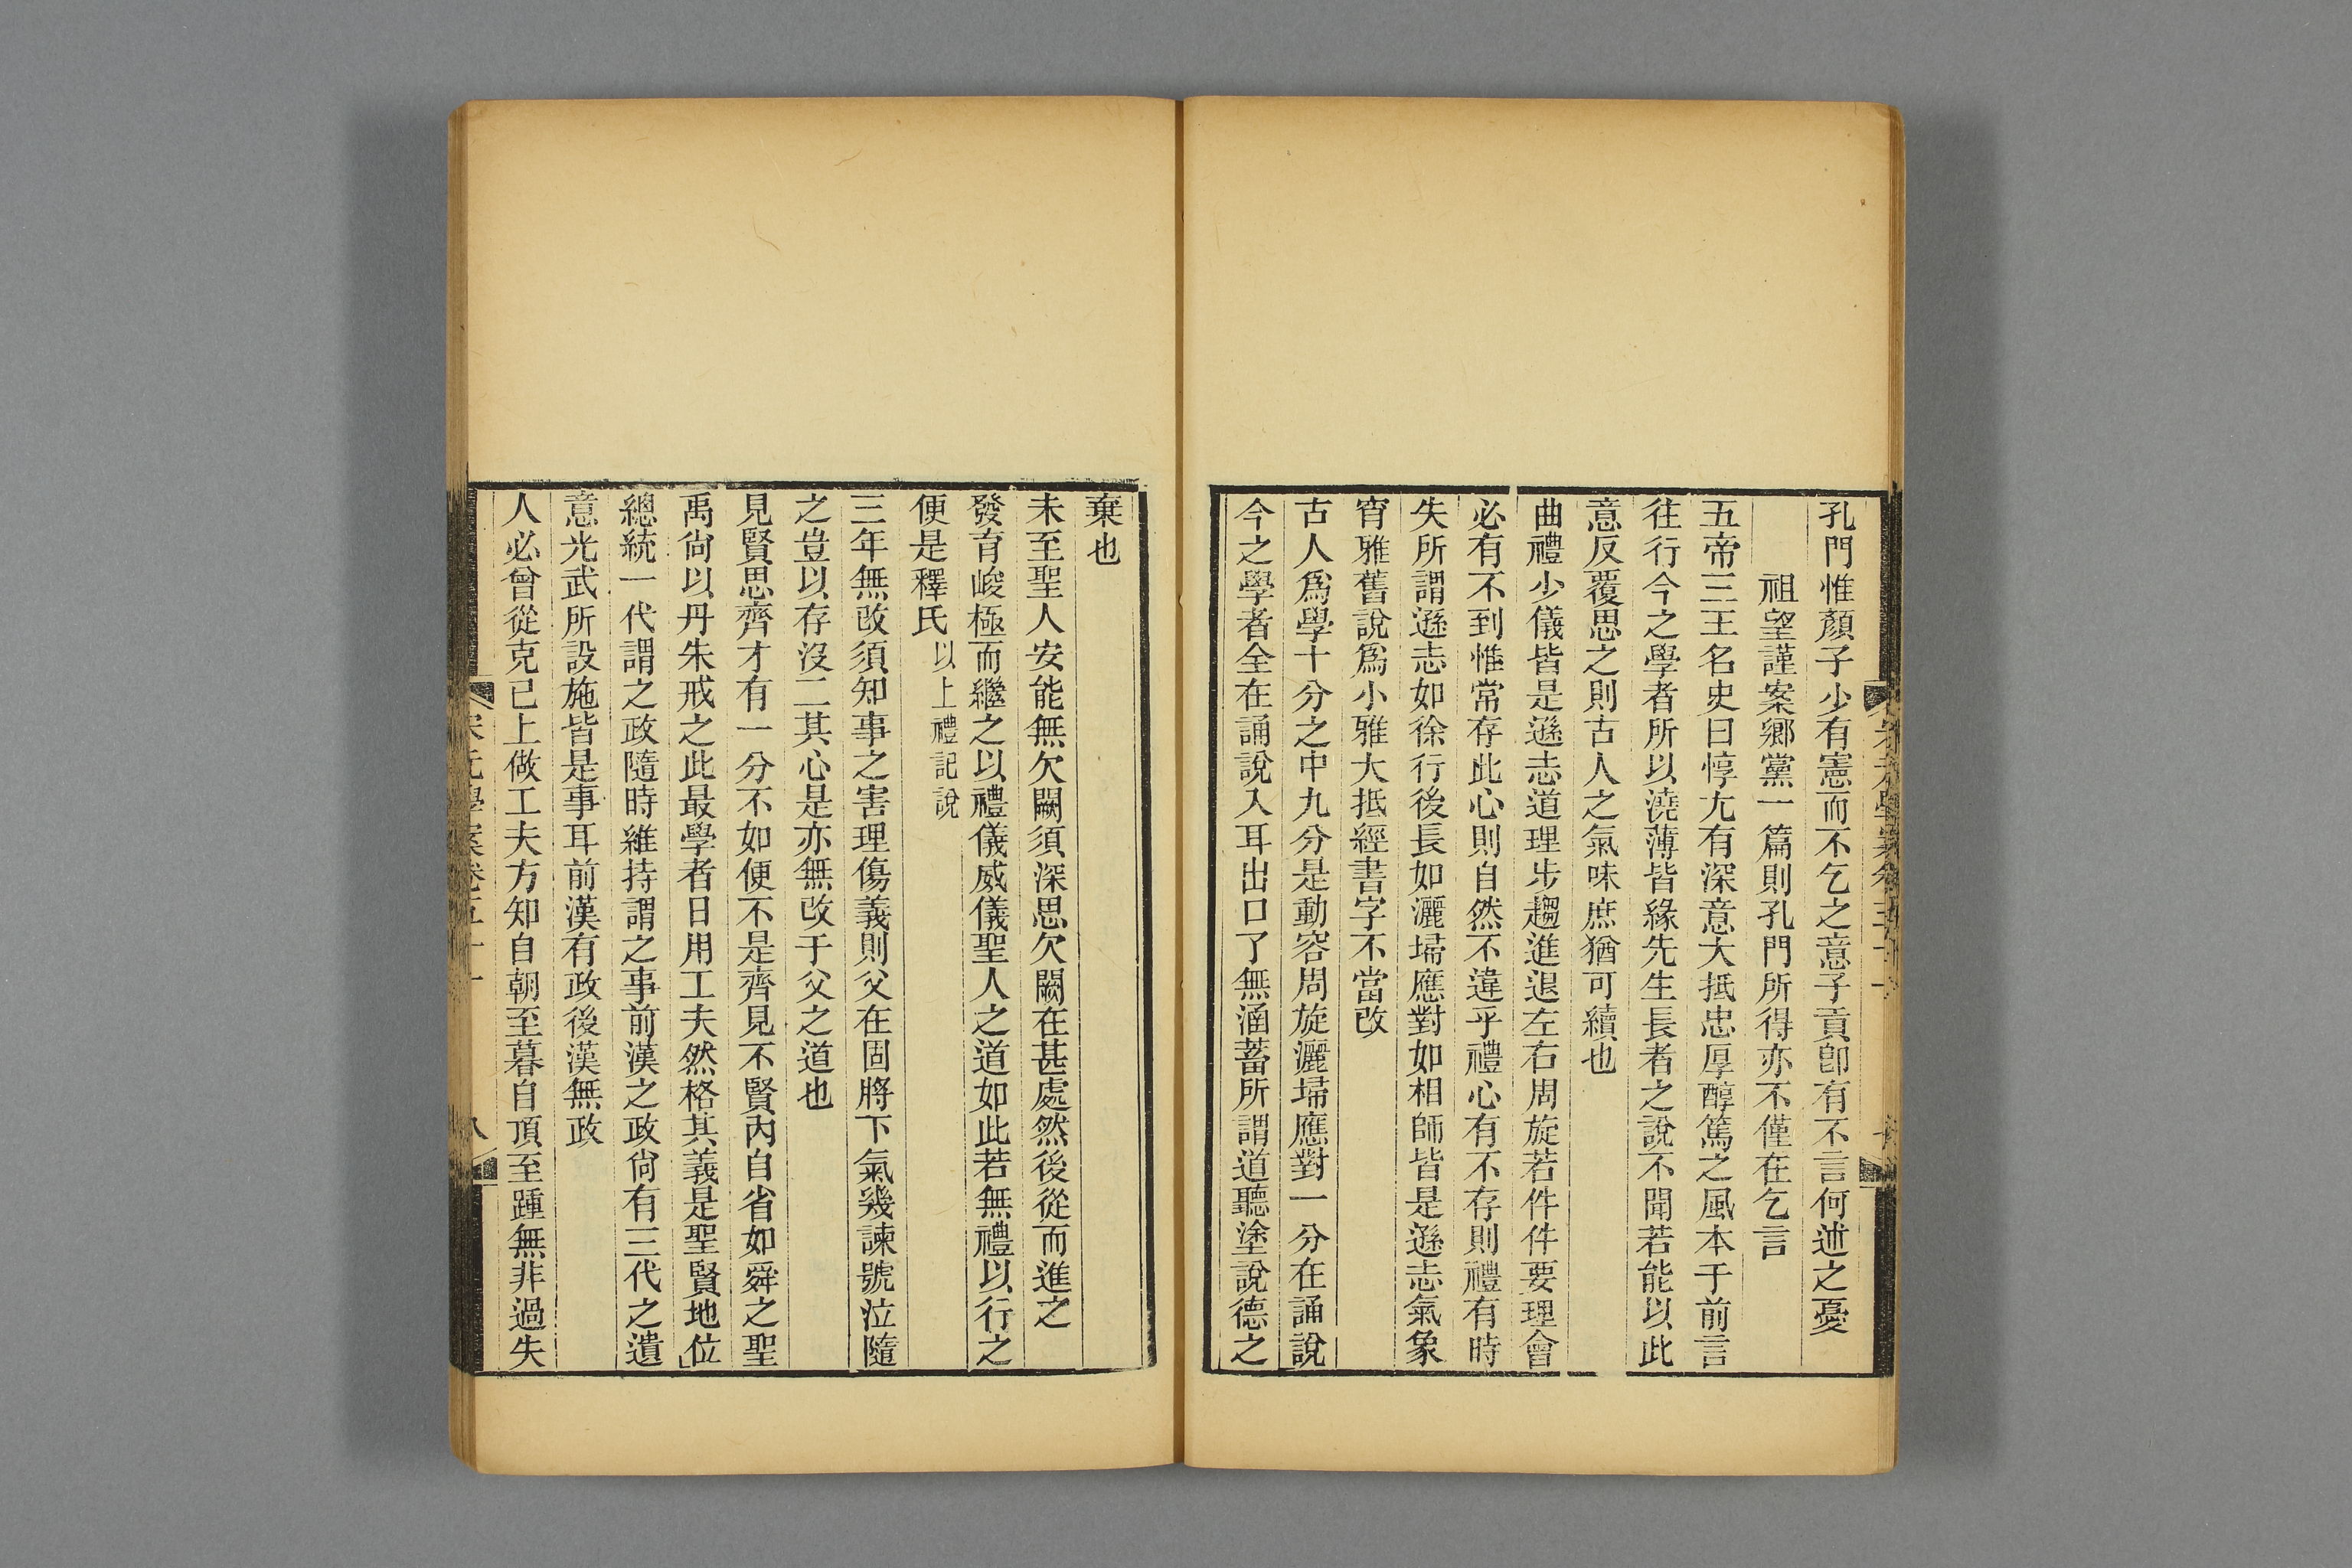 孔門惟顏子少有憲而不乞之意子貢卽有不言何述之憂
祖望謹案鄉黨一篇則孔門所得亦不僅在乞言
五帝三王名史曰惇尤有深意大抵忠厚醇篤之風本于前言
往行今之學者所以澆薄皆緣先生長者之說不聞若能以此
意反覆思之則古人之氣味庶猶可續也
曲禮少儀皆是遜志道理步趨進退左右周旋若件件要理會
必有不到惟常存此心則自然不違乎禮心有不存則禮有時
失所謂遜志如徐行後長如灑埽應對如相師皆是遜志氣象
宵雅舊說爲小雅大抵經書字不當改
古人爲學十分之中九分是動容周旋灑埽應對一分在誦說
今之學者全在誦說入耳出口了無涵蓄所謂道聽塗說德之
棄也
未至聖人安能無欠闕須深思欠闕在甚處然後從而進之
發育峻極而繼之以禮儀威儀聖人之道如此若無禮以行之
便是釋氏以上禮記說
三年無改須知事之害理傷義則父在固將下氣幾諫號泣隨
之豈以存沒二其心是亦無改于父之道也
見賢思齊才有一分不如便不是齊見不賢內自省如舜之聖
禹尙以丹朱戒之此最學者日用工夫然格其義是聖賢地位
總統一代謂之政隨時維持謂之事前漢之政尙有三代之遺
意光武所設施皆是事耳前漢有政後漢無政
人必曾從克己上做工夫方知自朝至暮自頂至踵無非過失
宋元學案卷五十一
八